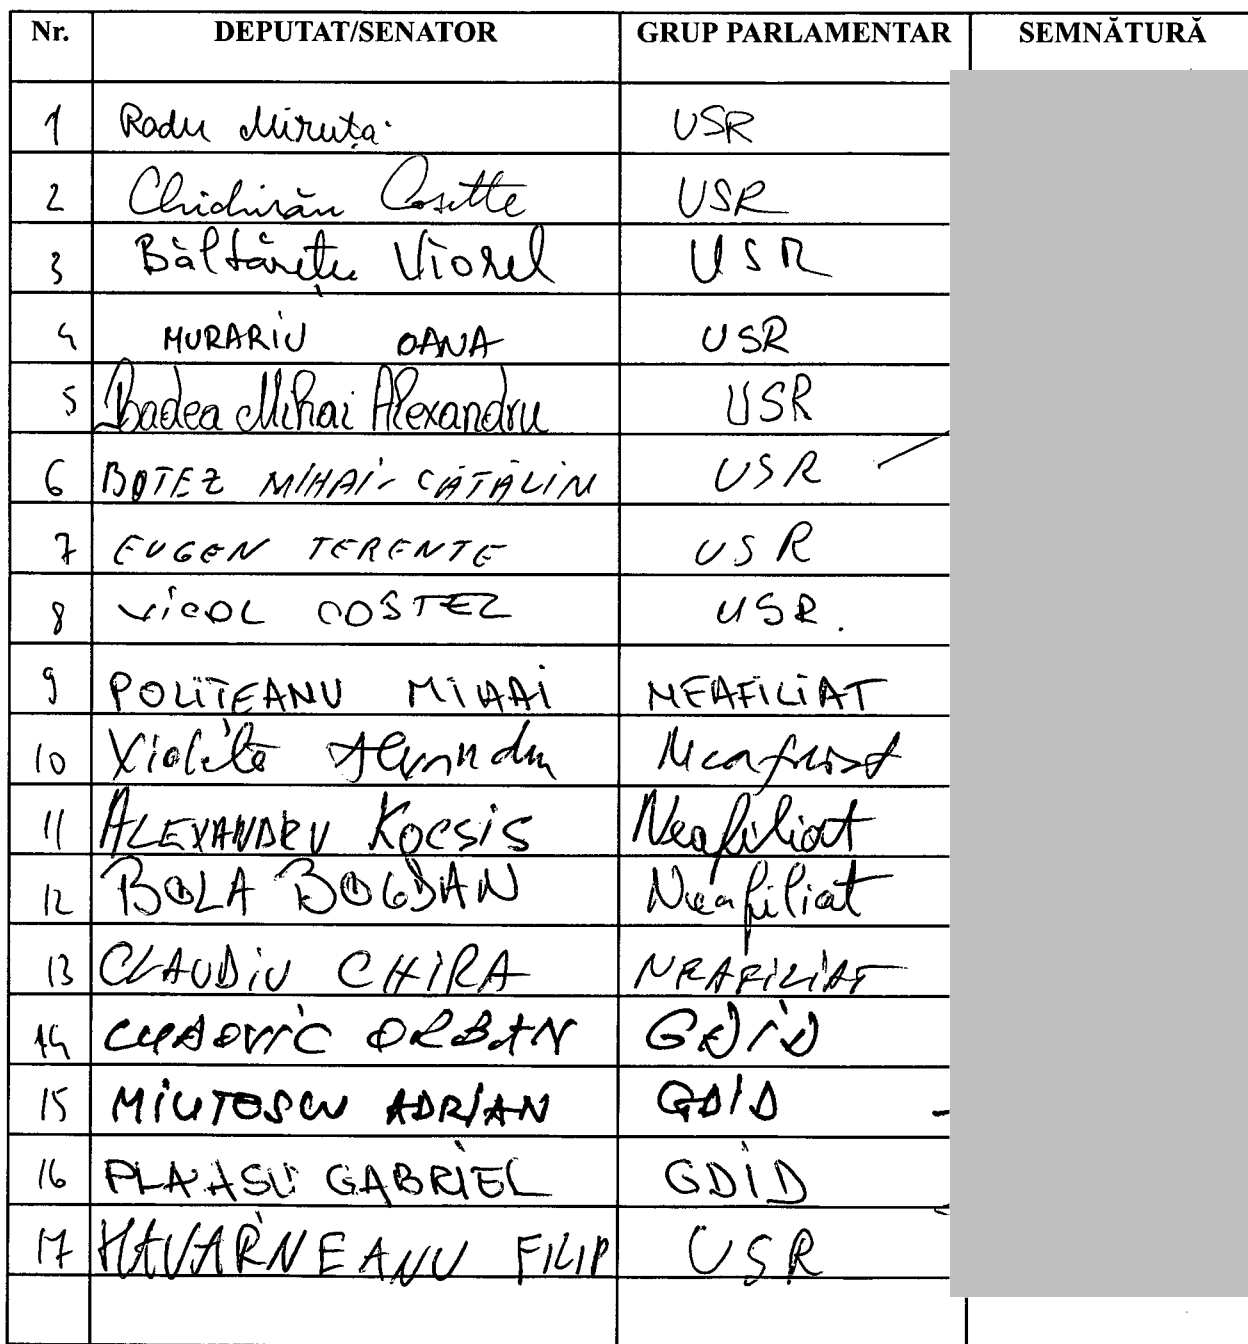 Nr. DEPUTAT/SENATOR GRUP PARLAMENTAR SEMNĂTURĂ
1 Radu Miruța USR
2 Chichirău Cosette USR
3 Băltărețu Viorel USR
4 MURARIU OANA USR
5 Badea Mihai Alexandru USR
6 BOTEZ MIHAI-CĂTĂLIN USR
7 EUGEN TERENTE USR
8 VICOL COSTEL USR.
9 POLITEANU MIHAI NEAFILIAT
10 Violeta Alexandru Neafiliat
11 ALEXANDRU KOCSIS Neafiliat
12 BOLA BOGDAN Neafiliat
13 CLAUDIU CHIRA NEAFILIAT
14 LUDOVIC ORBAN GDID
15 MIUTESCU ADRIAN GDID
16 PLĂIAȘU GABRIEL GDID
17 HAVÂRNEANU FILIP USR